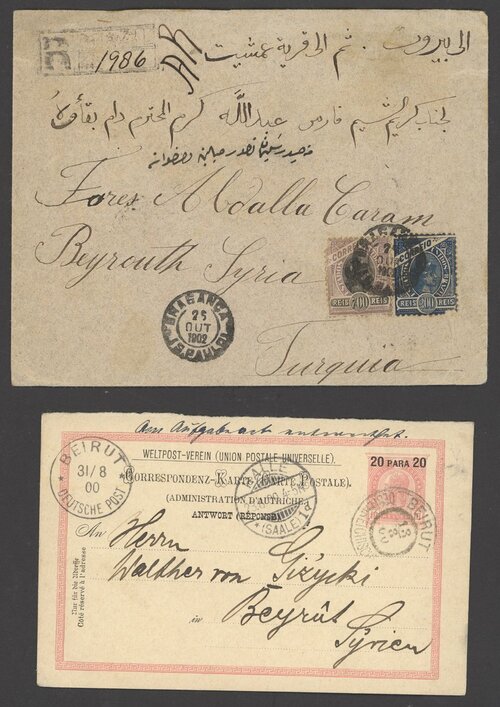 1986
AR
الى بيروت . ثم الى قرية غمشيت
لجناب كريم الشيم فارس عبدالله كرم المحترم دام بقاؤه
Fares Abdalla Caram
Beyrouth Syria
Turquia
BRAGANÇA
26
OUT
1902
(S. PAULO)
CORREIO
700
REIS REIS
CORREIO
200
REIS REIS
Von Aufgabeort entwerthet.
WELTPOST-VEREIN (UNION POSTALE UNIVERSELLE).
Correspondenz-Karte (Carte Postale).
(ADMINISTRATION D'AUTRICHE)
ANTWORT (RÉPONSE)
20 PARA 20
BEIRUT
31/8
00
DEUTSCHE POST
HALLE
(SAALE) 1
BEIRUT
An
Herrn
Walther von Gizycki
in Beyrût
Syrien
Nur für die Adresse
Côté réservé à l'adresse